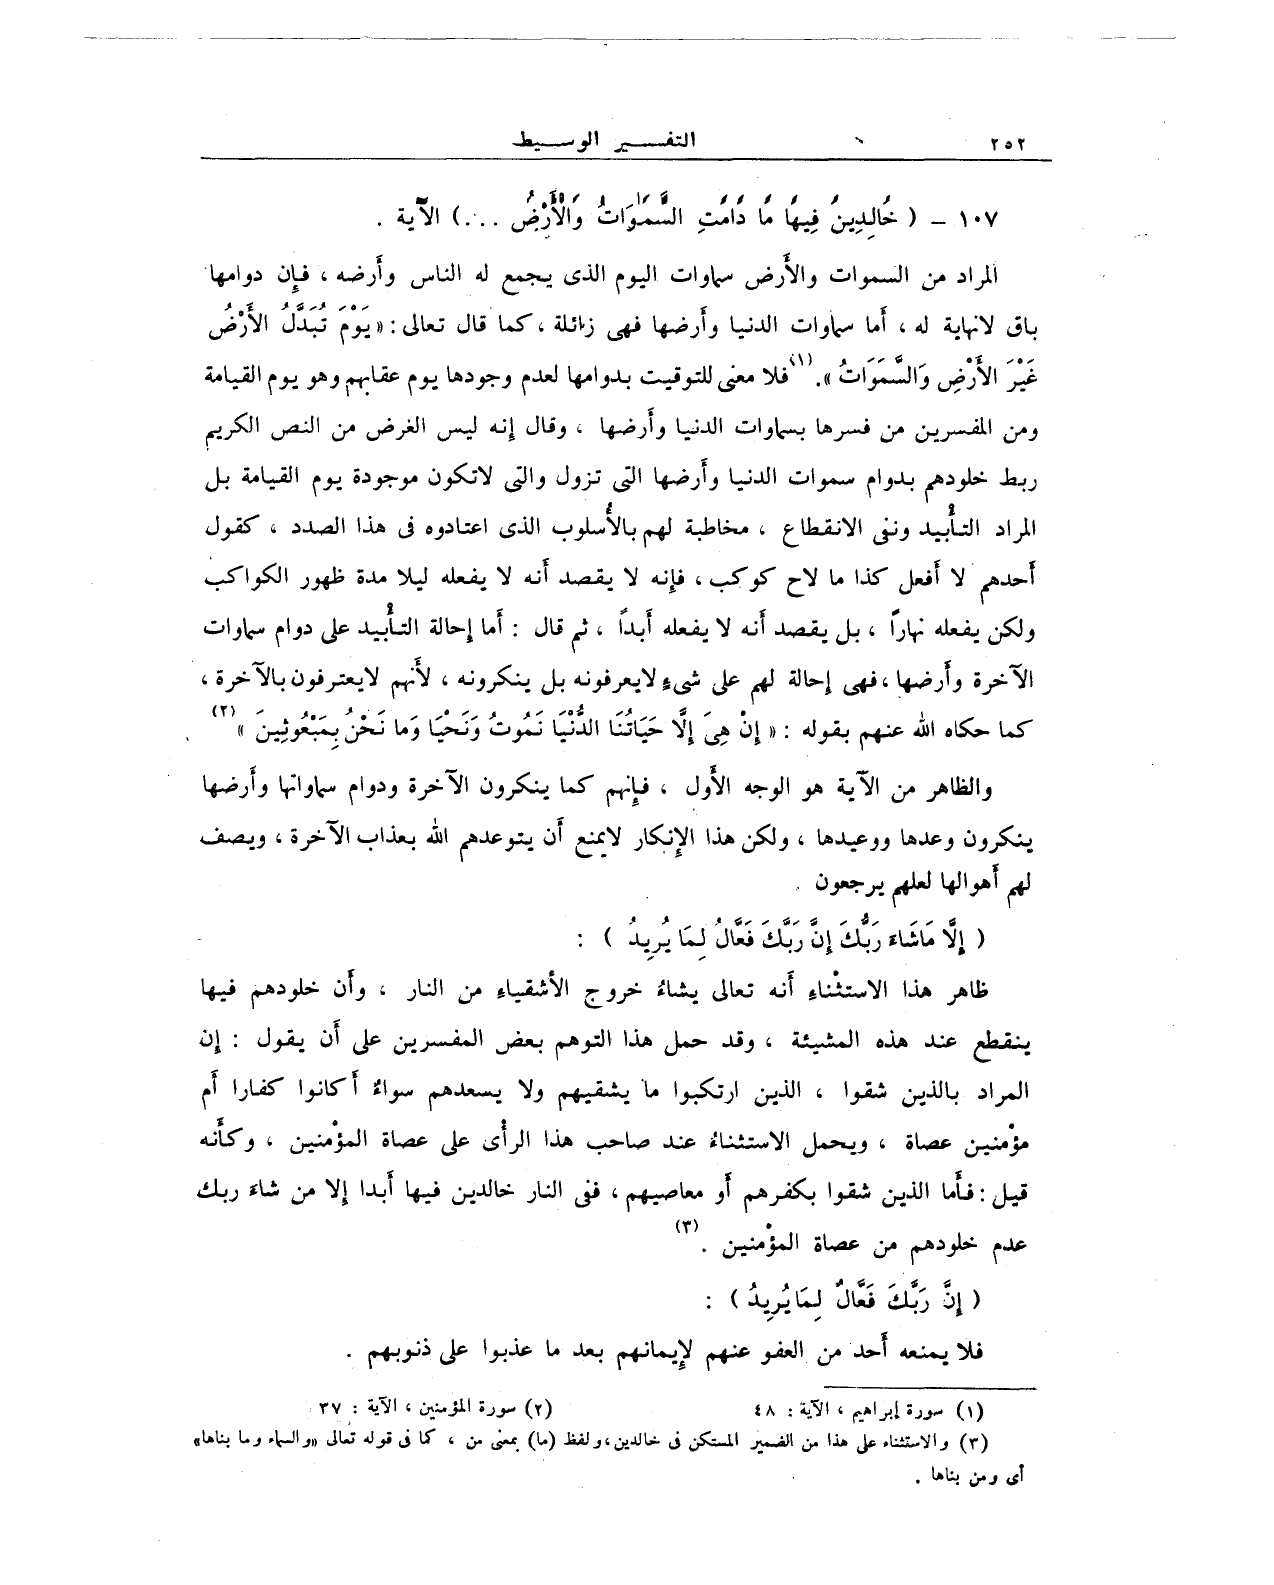 ٢٥٢ التفسير الوسيط
١٠٧ – ( خَالِدِينَ فِيهَا مَا دَامَتِ السَّمَٰوَاتُ وَالْأَرْضُ ... ) الآية .
المراد من السموات والأرض سماوات اليوم الذى يجمع له الناس وأرضه ، فإن دوامها
باق لانهاية له ، أما سماوات الدنيا وأرضها فهى زائلة ، كما قال تعالى : « يَوْمَ تُبَدَّلُ الأَرْضُ
غَيْرَ الأَرْضِ وَالسَّمَوَاتُ ».(١) فلا معنى للتوقيت بدوامها لعدم وجودها يوم عقابهم وهو يوم القيامة
ومن المفسرين من فسرها بسماوات الدنيا وأرضها ، وقال إنه ليس الغرض من النص الكريم
ربط خلودهم بدوام سموات الدنيا وأرضها التى تزول والتى لاتكون موجودة يوم القيامة بل
المراد التأبيد ونفى الانقطاع ، مخاطبة لهم بالأُسلوب الذى اعتادوه فى هذا الصدد ، كقول
أحدهم لا أفعل كذا ما لاح كوكب ، فإنه لا يقصد أنه لا يفعله ليلا مدة ظهور الكواكب
ولكن يفعله نهاراً ، بل يقصد أنه لا يفعله أبداً ، ثم قال : أما إحالة التأبيد على دوام سماوات
الآخرة وأرضها ، فهى إحالة لهم على شىءٍ لايعرفونه بل ينكرونه ، لأنهم لايعترفون بالآخرة ،
كما حكاه الله عنهم بقوله : « إِنْ هِىَ إِلَّا حَيَاتُنَا الدُّنْيَا نَمُوتُ وَنَحْيَا وَما نَحْنُ بِمَبْعُوثِينَ »(٢)
والظاهر من الآية هو الوجه الأول ، فإنهم كما ينكرون الآخرة ودوام سماواتها وأرضها
ينكرون وعدها ووعيدها ، ولكن هذا الإنكار لايمنع أن يتوعدهم الله بعذاب الآخرة ، ويصف
لهم أهوالها لعلهم يرجعون .
( إِلَّا مَاشَاءَ رَبُّكَ إِنَّ رَبَّكَ فَعَّالٌ لِمَا يُرِيدُ ) :
ظاهر هذا الاستثناءِ أنه تعالى يشاءُ خروج الأشقياءِ من النار ، وأن خلودهم فيها
ينقطع عند هذه المشيئة ، وقد حمل هذا التوهم بعض المفسرين على أن يقول : إن
المراد بالذين شقوا ، الذين ارتكبوا ما يشقيهم ولا يسعدهم سواءٌ أكانوا كفارا أم
مؤمنين عصاة ، ويحمل الاستثناءُ عند صاحب هذا الرأى على عصاة المؤمنين ، وكأنه
قيل : فأما الذين شقوا بكفرهم أو معاصيهم ، ففى النار خالدين فيها أبدا إلا من شاءَ ربك
عدم خلودهم من عصاة المؤمنين .(٣)
( إِنَّ رَبَّكَ فَعَّالٌ لِمَا يُرِيدُ ) :
فلا يمنعه أحد من العفو عنهم لإيمانهم بعد ما عذبوا على ذنوبهم .
(١) سورة إبراهيم ، الآية : ٤٨ (٢) سورة المؤمنين ، الآية : ٣٧
(٣) والاستثناء على هذا من الضمير المستكن فى خالدين ، ولفظ (ما) بمعنى من ، كما فى قوله تعالى «والسماء وما بناها»
أى ومن بناها .